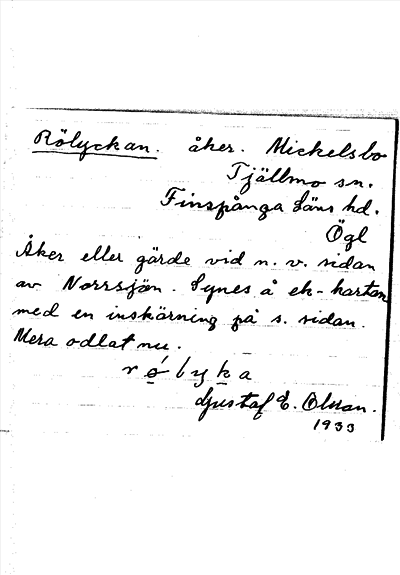 Rölyckan. åker. Mickelsbo
Tjällmo sn.
Finspånga Läns hd.
Ögl
Åker eller gärde vid n. v. sidan
av Norrsjön. Synes å ek-kartan
med en inskärning på s. sidan.
Mera odlat nu.
rǿlyka
Gustaf E. Olsson.
1933